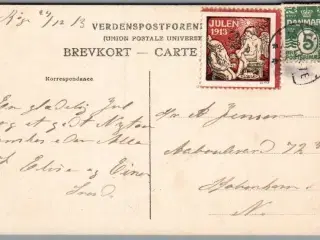 24/12 13
VERDENSPOSTFORENI
(UNION POSTALE UNIVERSE
BREVKORT - CARTE
JULEN
1913
5
Korrespondance
En glædelig Jul
og et godt Nytaar
ønskes eder Alle
Elvira og Einar
A Jensen
Aaboulevard 72
København
N.